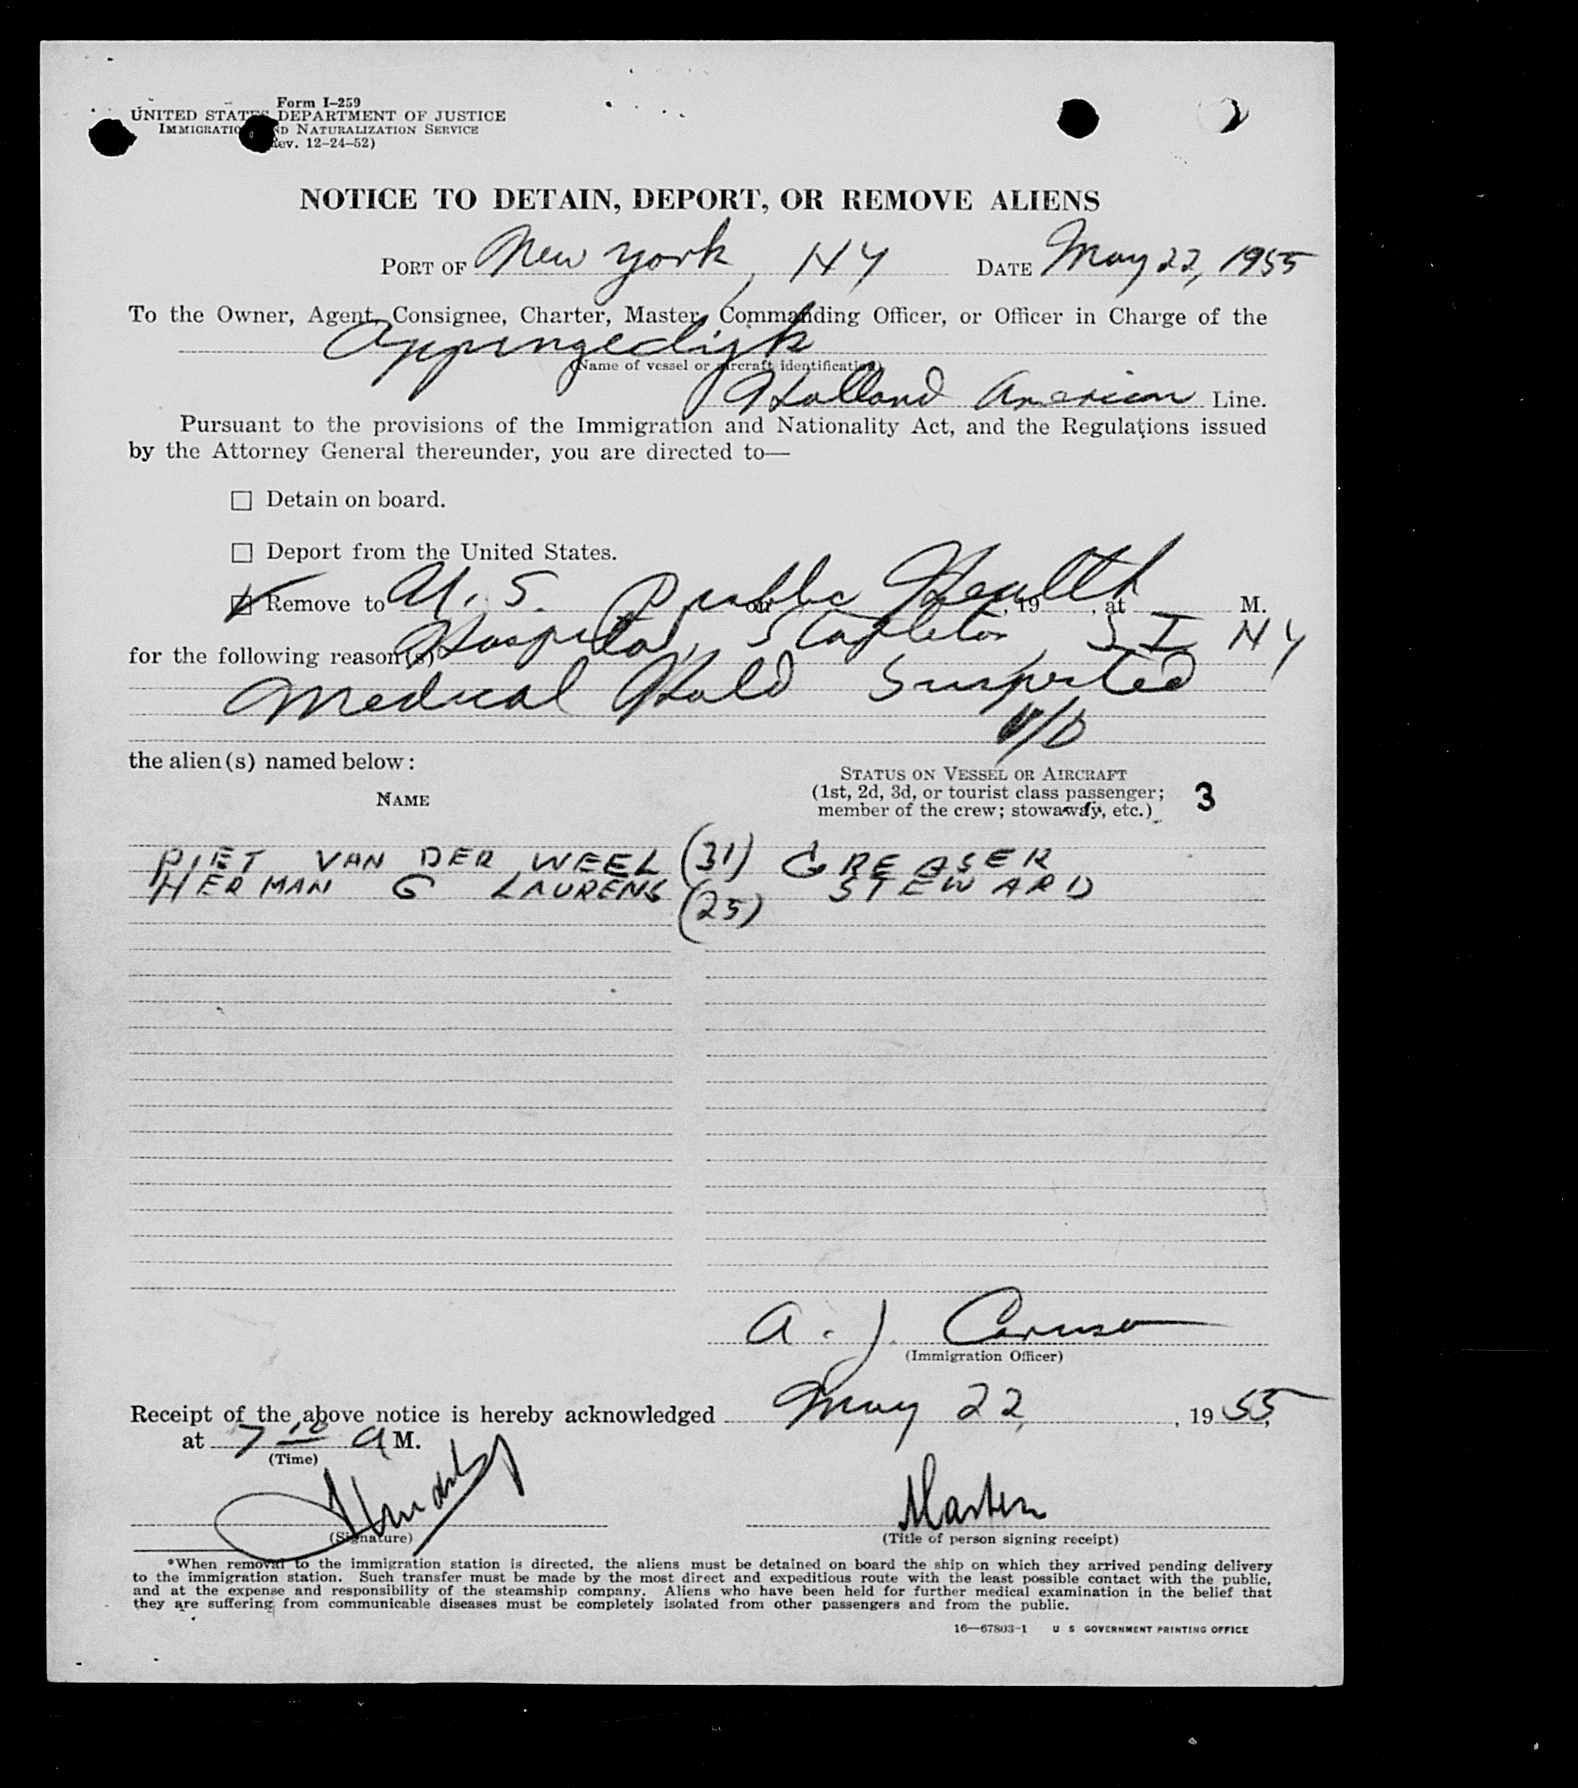 Form I-259
UNITED STATES DEPARTMENT OF JUSTICE
IMMIGRATION AND NATURALIZATION SERVICE
(Rev. 12-24-52)
NOTICE TO DETAIN, DEPORT, OR REMOVE ALIENS
PORT OF New York, NY DATE May 22, 1955
To the Owner, Agent, Consignee, Charter, Master, Commanding Officer, or Officer in Charge of the
Appingedijk
(Name of vessel or aircraft identification)
Holland American Line.
Pursuant to the provisions of the Immigration and Nationality Act, and the Regulations issued
by the Attorney General thereunder, you are directed to—
Detain on board.
Deport from the United States.
Remove to U. S. Public Health on , 19 , at M.
Hospital, Stapleton, S I NY
for the following reason(s)
Medical Hold Suspected
V/D
the alien(s) named below:
NAME
STATUS ON VESSEL OR AIRCRAFT
(1st, 2d, 3d, or tourist class passenger;
member of the crew; stowaway, etc.)
3
PIET VAN DER WEEL (31) GREASER
HERMAN G LAURENS (25) STEWARD
A. J. Caruso
(Immigration Officer)
Receipt of the above notice is hereby acknowledged May 22, 1955,
at 7 10 A M.
(Time)
Master
(Signature)
(Title of person signing receipt)
*When removal to the immigration station is directed, the aliens must be detained on board the ship on which they arrived pending delivery
to the immigration station. Such transfer must be made by the most direct and expeditious route with the least possible contact with the public,
and at the expense and responsibility of the steamship company. Aliens who have been held for further medical examination in the belief that
they are suffering from communicable diseases must be completely isolated from other passengers and from the public.
16—67803-1 U S GOVERNMENT PRINTING OFFICE